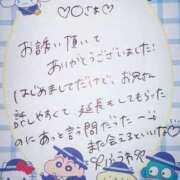 ♡〇さぁ♡
お誘い頂いて
ありがとうございました!
はじめましてだけど、お兄さん
話しやすくて 延長もしてもらった
のにあっと言う間だった〜
また会えるといいな♡